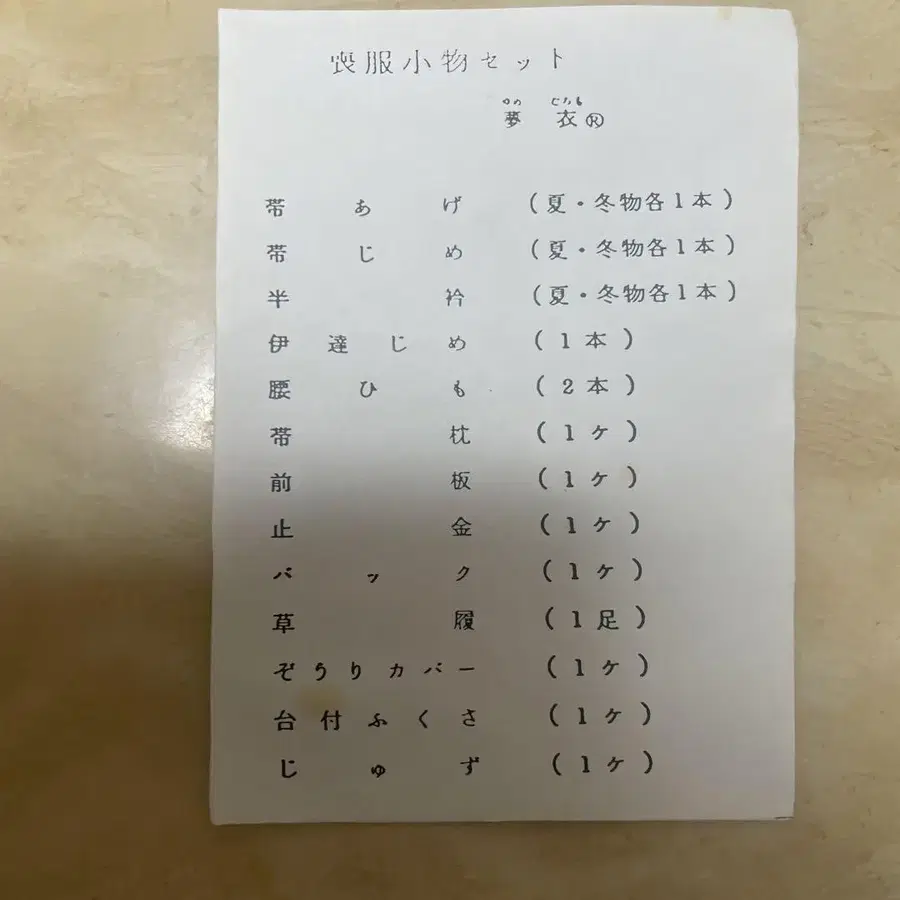 喪服小物セット
夢衣®
帯あげ (夏・冬物各1本)
帯じめ (夏・冬物各1本)
半衿 (夏・冬物各1本)
伊達じめ (1本)
腰ひも (2本)
帯枕 (1ケ)
前板 (1ケ)
止金 (1ケ)
バック (1ケ)
草履 (1足)
ぞうりカバー (1ケ)
台付ふくさ (1ケ)
じゅず (1ケ)